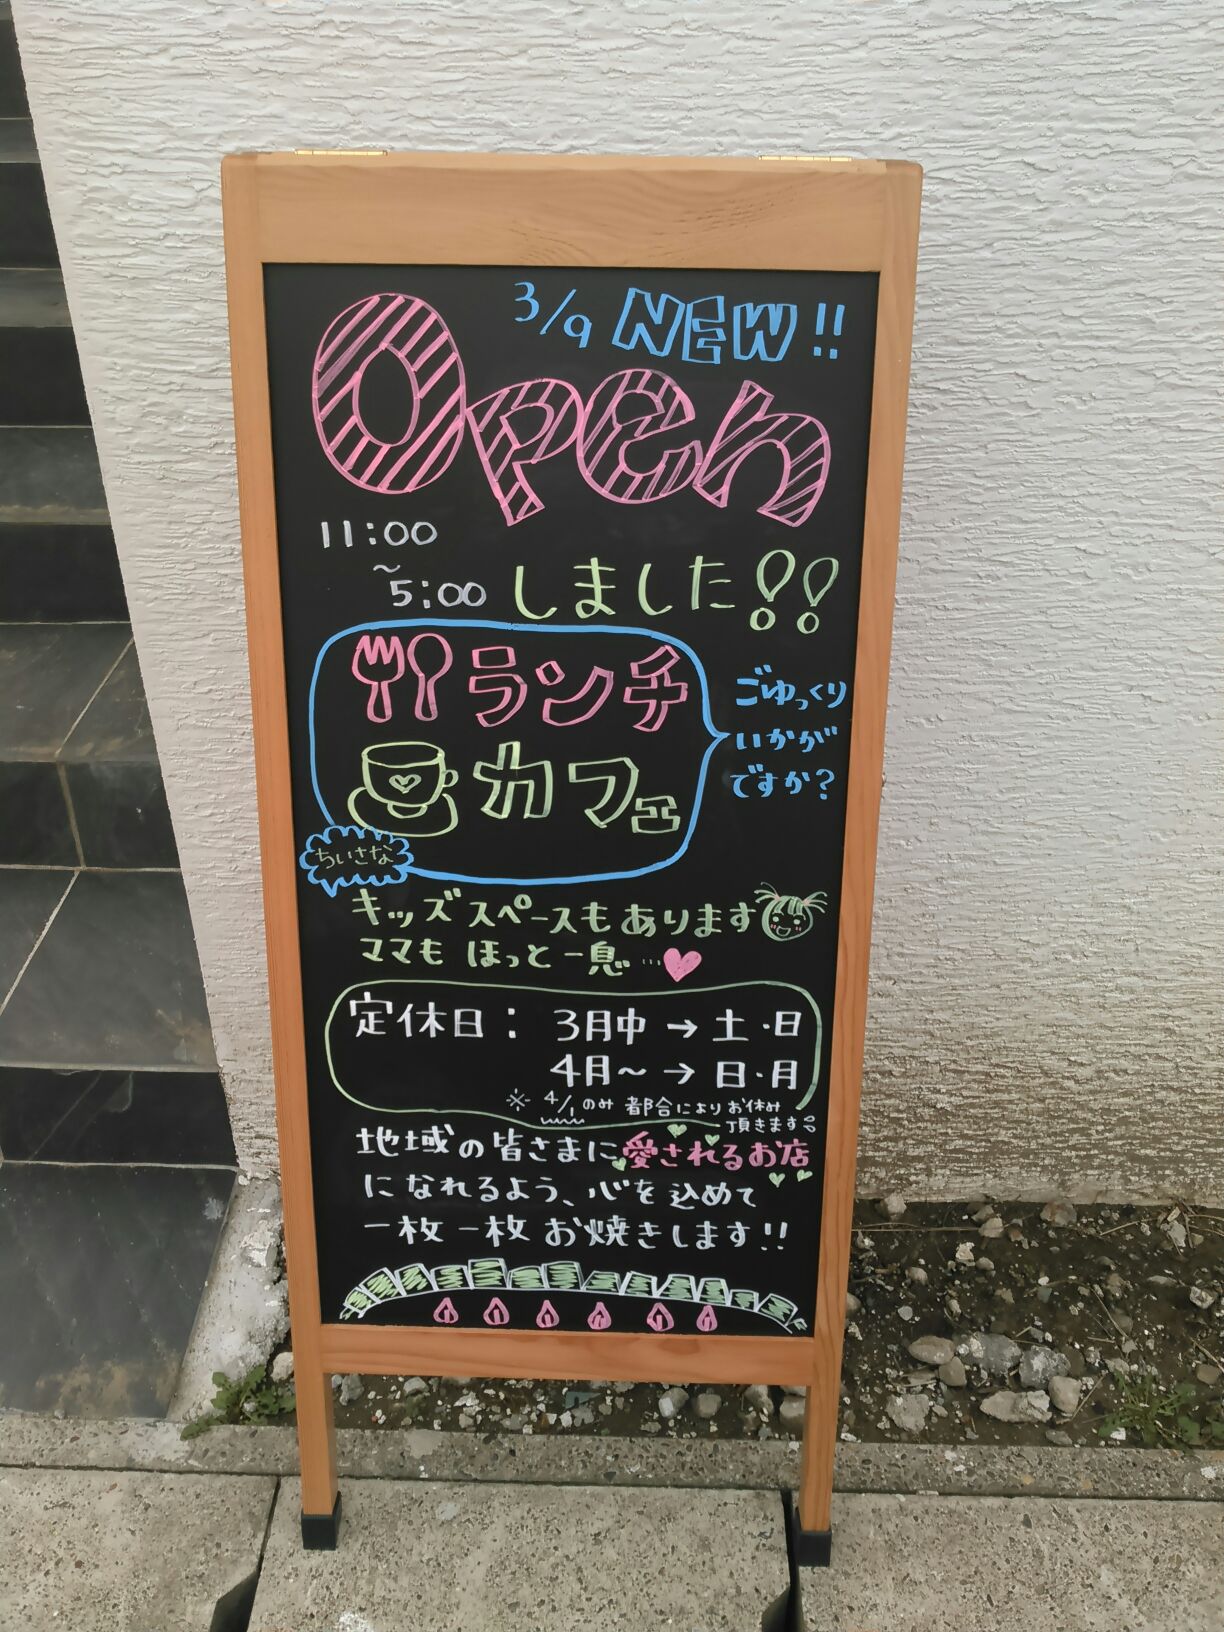 3/9 NEW!!
Open
11:00
~
5:00 しました!!
ランチ
カフェ
ごゆっくり
いかが
ですか?
ちいさな
キッズスペースもあります
ママも ほっと一息…
定休日: 3月中→土・日
4月~→日・月
※ 4/1のみ 都合によりお休み
頂きます
地域の皆さまに愛されるお店
になれるよう、心を込めて
一枚一枚お焼きします!!